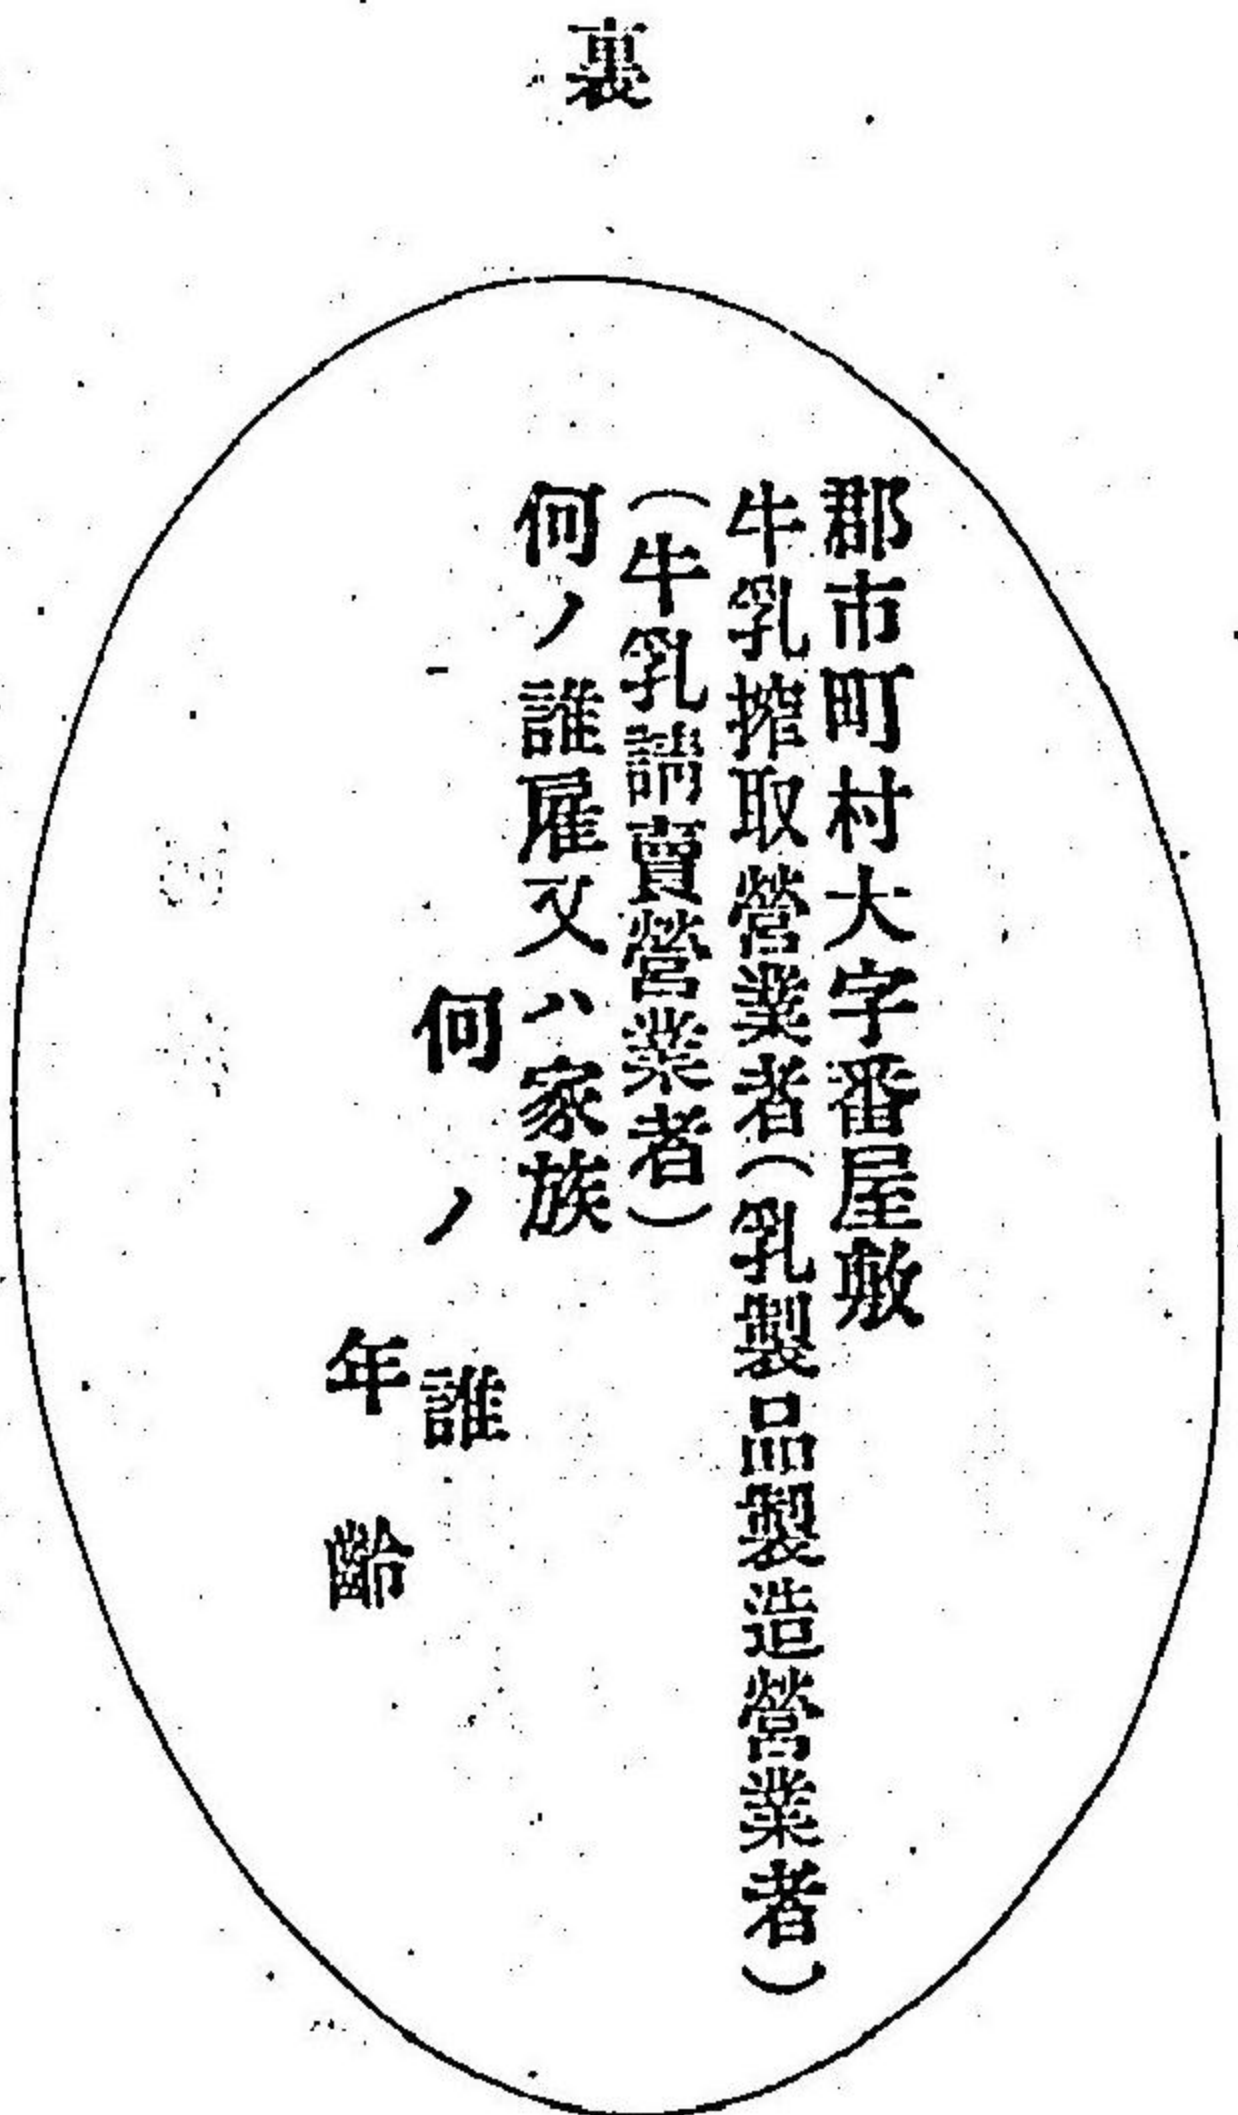 裏
郡市町村大字番屋敷
牛乳搾取營業者(乳製品製造營業者)
(牛乳請賣營業者)
何ノ誰雇又ハ家族
何ノ誰
年齡